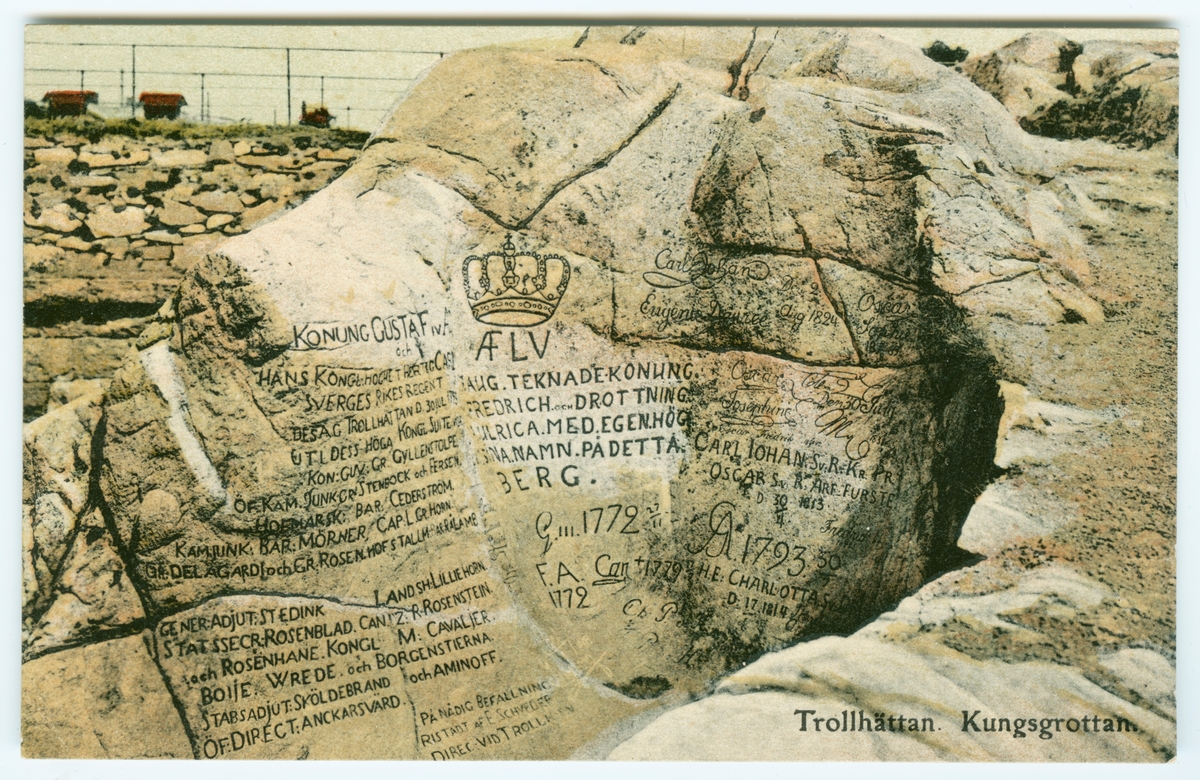 KONUNG GUSTAF IV. A.
och
HANS KÖNGL. HÖGHET HERTIG CARL
SVERGES RIKES REGENT
BESÅG TROLLHÄTTAN D. 30 JULI
UTI DESS HÖGA KONGL. SUITE
KON: GUV: GR. GYLLENSTOLPE
ÖF: KAM: JUNK: GR. STENBOCK och FERSEN.
HOFMARSK: BAR. CEDERSTRÖM.
KAMJUNK: BAR. MÖRNER. CAP. L. GR. HORN.
GR. DELAGARDI och GR. ROSEN. HOFSTALLM:
LANDSH: LILLIEHORN.
GENER: ADJUT: STEDINK
STATSSECR: ROSENBLAD. CANTZ: R. ROSENSTEIN.
och ROSENHANE. KONGL. M. CAVALJER.
BOIJE. WREDE. och BORGENSTIERNA.
STABSADJUT: SKÖLDEBRAND och AMINOFF.
ÖF: DIRECT: ANCKARSVÄRD.
PÅ NÅDIG BEFALLNING
RISTADT AF E.
DIREC. VID TROLLH
ÆLV
AUG. TEKNADE. KONUNG.
FREDRICH. och DROTTNING.
ULRICA. MED. EGEN. HÖG
SNA. NAMN. PÅ DETTA.
BERG.
G. III. 1772
F. A. Can 1779
1772
Carl Johan
Eugenie Aug 1824
Oscar
Josephine
den 30 July
CARL JOHAN. Sv. R. Kr. Pr.
OSCAR Sv. R. ARF. FURSTE
D 30
1813
1793
H. E. CHARLOTTA
D. 17. 1814
Trollhättan. Kungsgrottan.